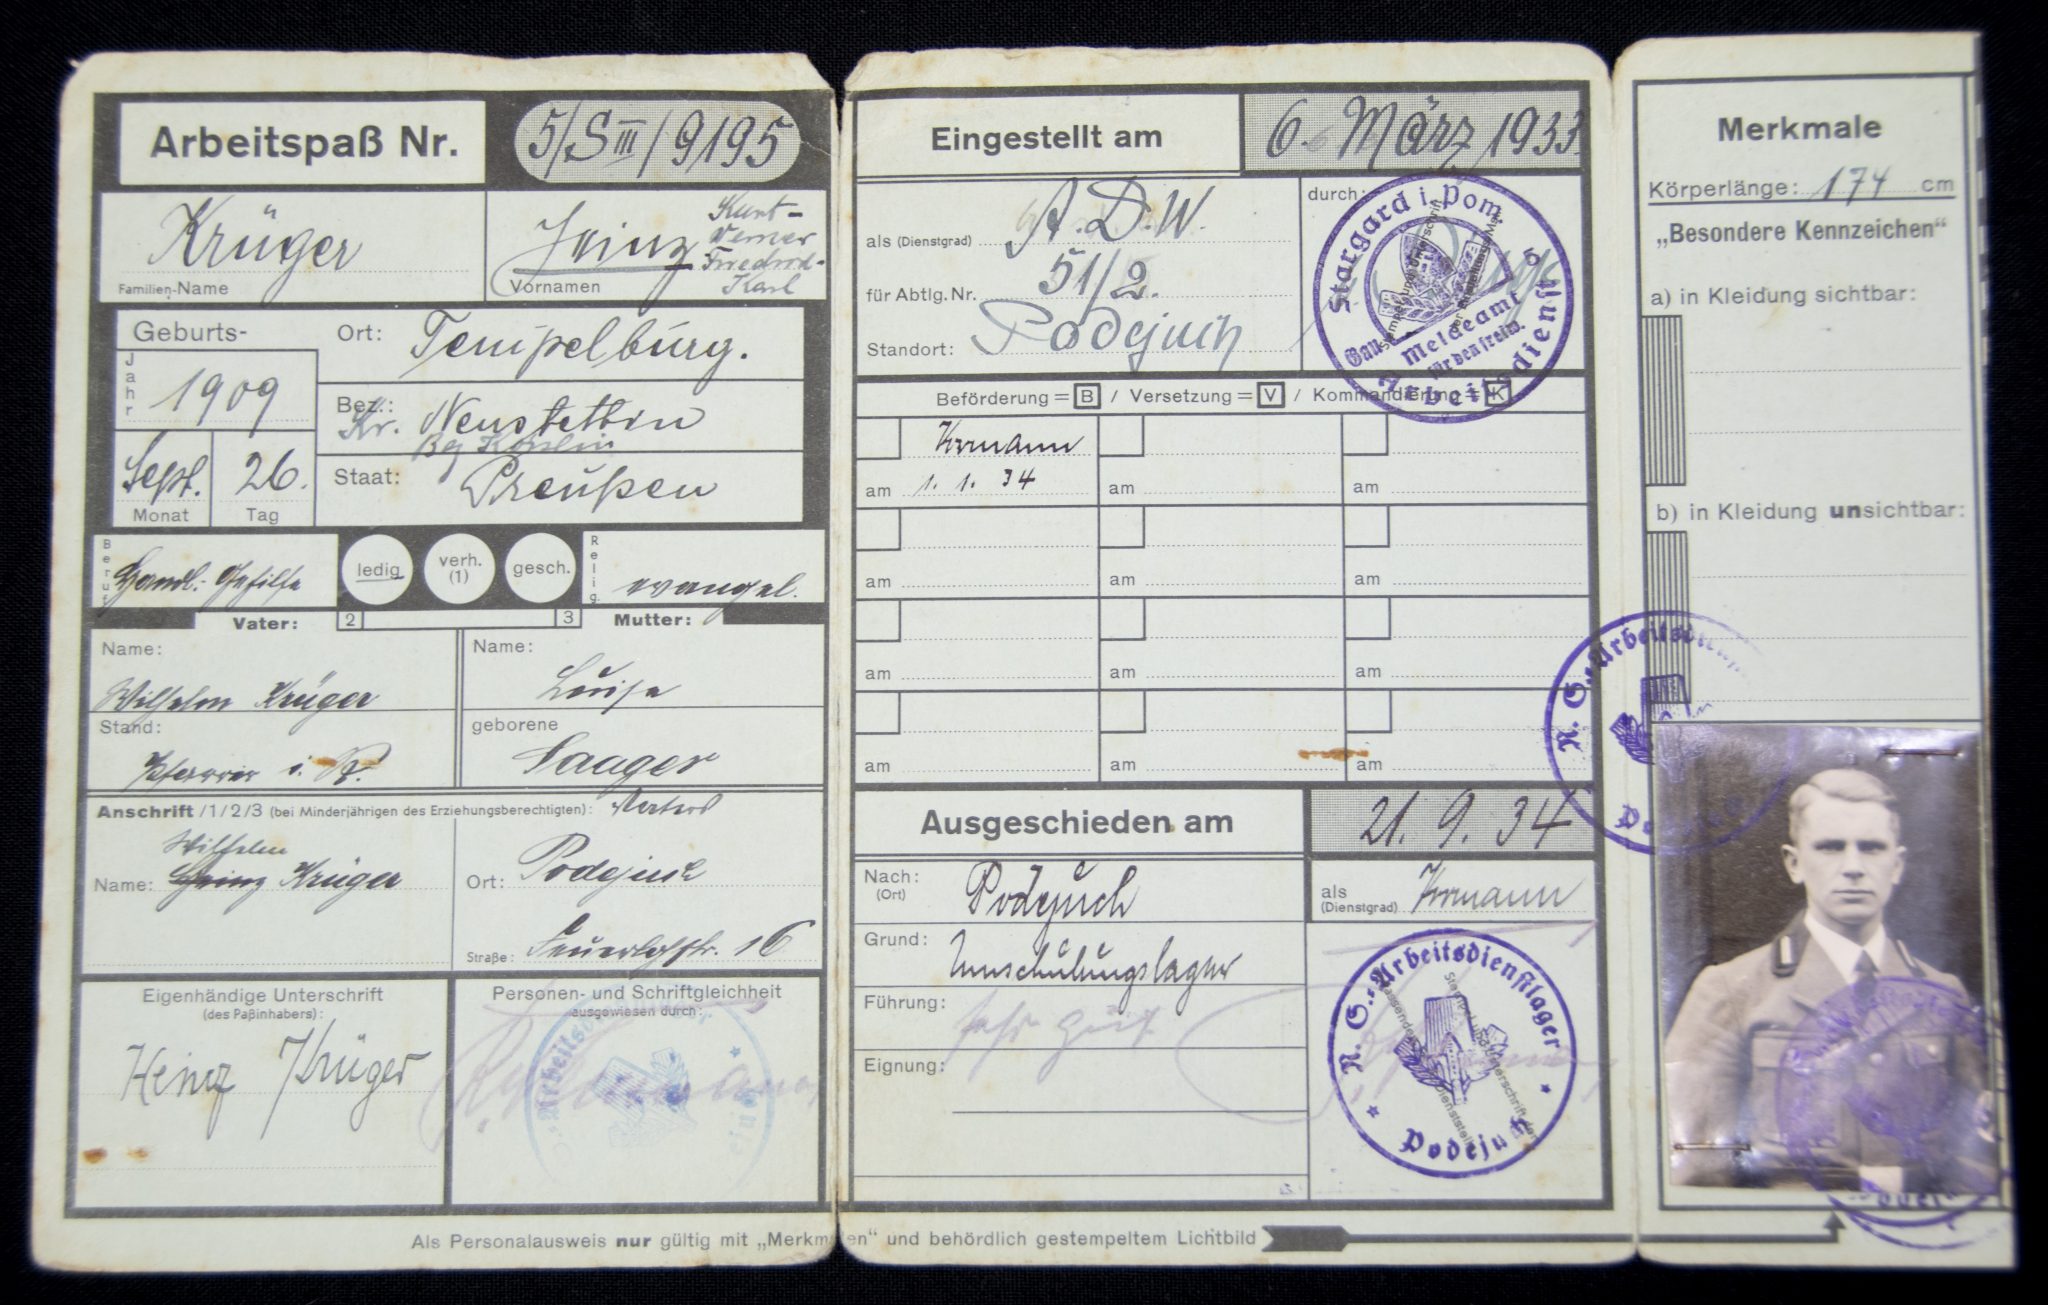 Arbeitspaß Nr. 5/S III/9195
Krüger
Familien-Name
Heinz
Kurt-
Werner
Friedrich-
Karl
Vornamen
Geburts-
Jahr
1909
Sept. 26.
Monat Tag
Ort: Tempelburg.
Bez.:
Kr. Neustettin
Bez Köslin
Staat: Preußen
Beruf
Handl.-Gehilfe
ledig
verh.
(1)
gesch.
Relig.
evangel.
Vater: 2 3 Mutter:
Name:
Wilhelm Krüger
Name:
Louise
Stand:
Pfarrer i. R.
geborene
Saager
Anschrift /1/2/3 (bei Minderjährigen des Erziehungsberechtigten):
Wilhelm
Name: Heinz Krüger
Ort: Podejuch
Straße: 16
Eigenhändige Unterschrift
(des Paßinhabers):
Heinz Krüger
Personen- und Schriftgleichheit
ausgewiesen durch:
Eingestellt am 6. März 1933
als (Dienstgrad) A.D.W.
für Abtlg. Nr. 51/2.
Standort: Podejuch
durch:
Stargard i. Pom.
Gau 5
Meldeamt
für den freiw.
Arbeitsdienst
Beförderung = B / Versetzung = V / Kommandierung = K
Vormann
am 1. 1. 34 am am
am am am
am am am
am am am
Ausgeschieden am 21. 9. 34
Nach:
(Ort)
Podejuch
als
(Dienstgrad) Vormann
Grund: Umschulungslager
Führung: sehr gut
Eignung:
N.S.-Arbeitsdienstlager
Podejuch
Merkmale
Körperlänge: 174 cm
„Besondere Kennzeichen“
a) in Kleidung sichtbar:
b) in Kleidung unsichtbar:
N.S.-Arbeitsdienst
Als Personalausweis nur gültig mit „Merkmalen“ und behördlich gestempeltem Lichtbild